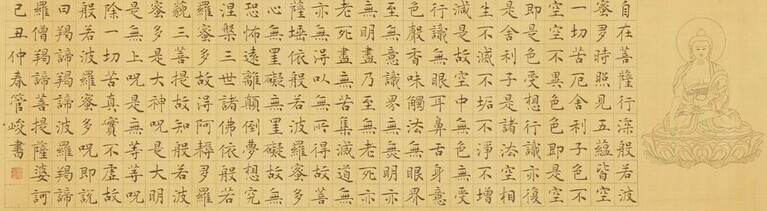 自在菩薩行深般若波
蜜多時照見五蘊皆空
一切苦厄舍利子色不
空空不異色色即是空
即是色受想行識亦復
是舍利子是諸法空相
生不滅不垢不淨不增
減是故空中無色無受
行識無眼耳鼻舌身意
色聲香味觸法無眼界
至無意識界無無明亦
無明盡乃至無老死亦
老死盡無苦集滅道無
亦無得以無所得故菩
薩埵依般若波羅蜜多
心無罣礙無罣礙故無
恐怖遠離顛倒夢想究
涅槃三世諸佛依般若
羅蜜多故得阿耨多羅
藐三菩提故知般若波
蜜多是大神呪是大明
是無上呪是無等等呪
除一切苦真實不虛故
般若波羅蜜多呪即說
曰羯諦羯諦波羅羯諦
羅僧羯諦菩提薩婆訶
己丑仲春管峻書